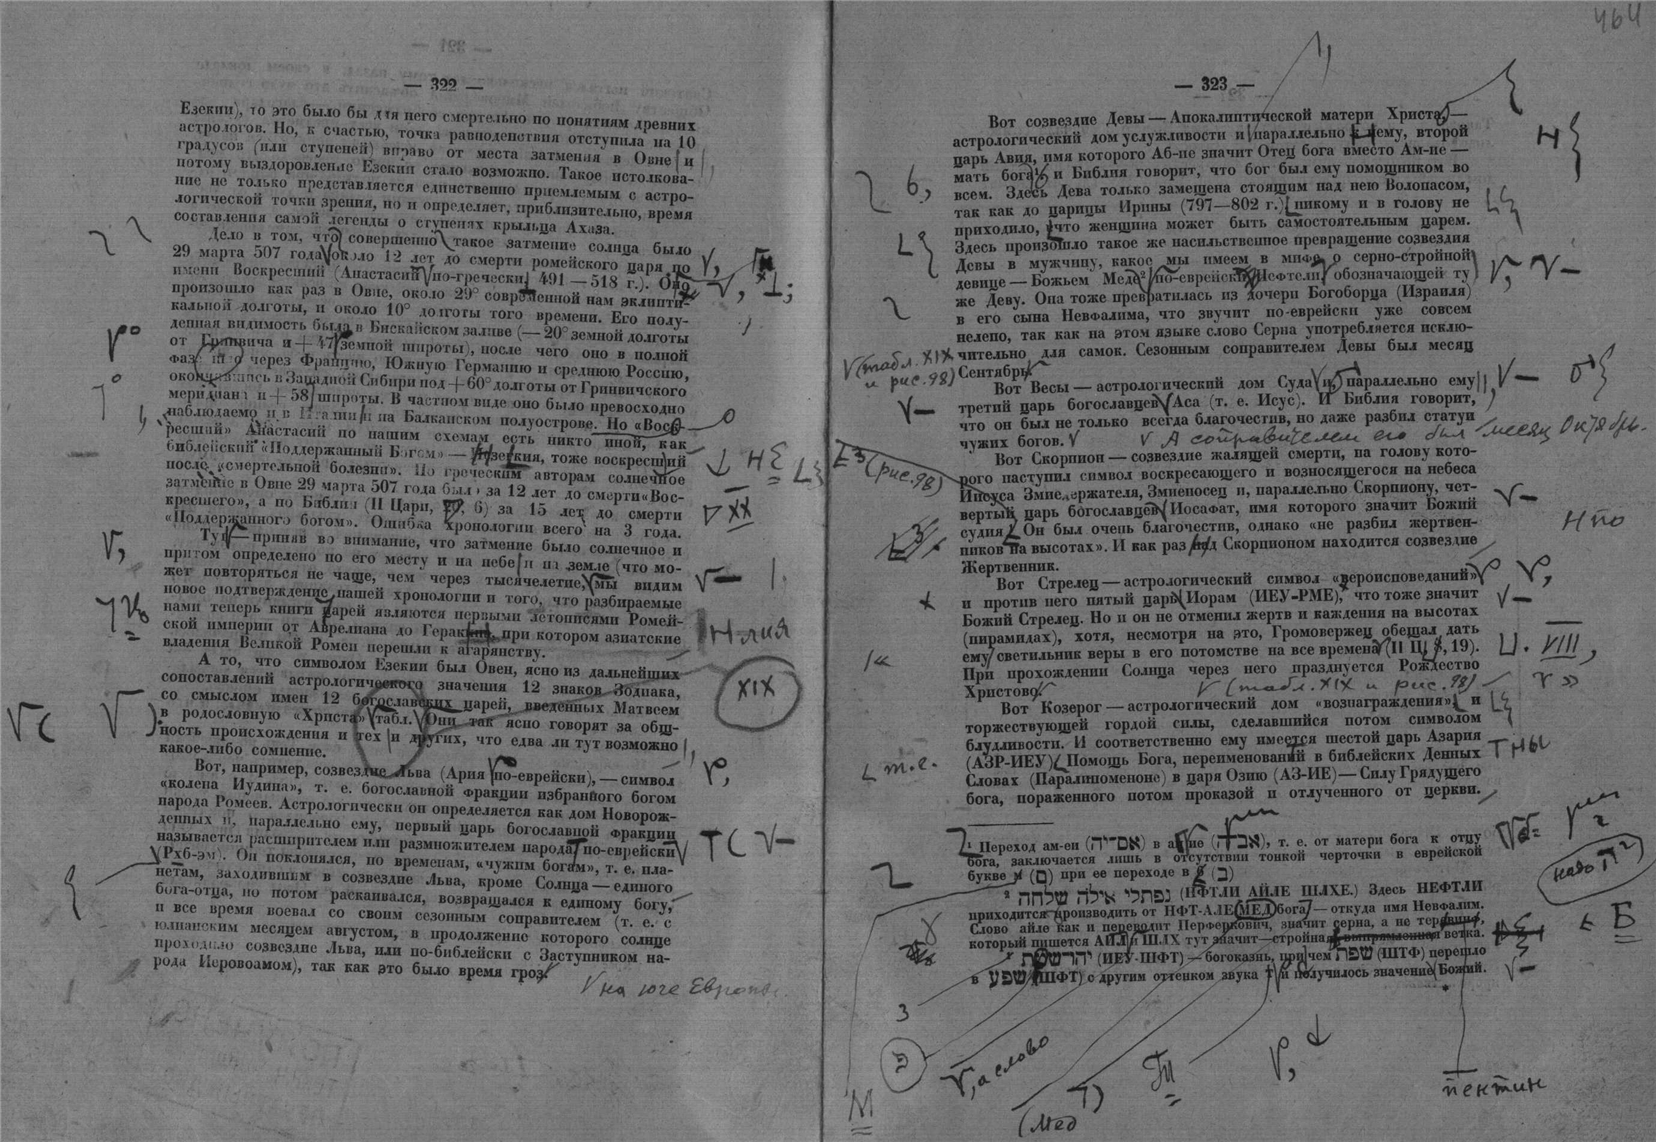 464
— 322 —
Езекии), то это было бы для него смертельно по понятиям древних
астрологов. Но, к счастью, точка равноденствия отступила на 10
градусов (или ступеней) вправо от места затмения в Овне и
потому выздоровление Езекии стало возможно. Такое истолкова-
ние не только представляется единственно приемлемым с астро-
логической точки зрения, но и определяет, приблизительно, время
составления самой легенды о ступенях крыльца Ахаза.
Дело в том, что совершенно такое затмение солнца было
29 марта 507 года около 12 лет до смерти ромейского царя по
имени Воскресший (Анастасий по-гречески 491—518 г.). Оно
произошло как раз в Овне, около 29° современной нам эклипти-
кальной долготы, и около 10° долготы того времени. Его полу-
денная видимость была в Бискайском заливе (—20° земной долготы
от Гринвича и +47 земной широты), после чего оно в полной
фазе шло через Францию, Южную Германию и среднюю Россию,
окончившись в Западной Сибири под +60° долготы от Гринвичского
меридиана и +58 широты. В частном виде оно было превосходно
наблюдаемо и в Италии и на Балканском полуострове. Но «Воск-
ресший» Анастасий по нашим схемам есть никто иной, как
библейский «Поддержанный Богом» — Иезекия, тоже воскресший
после «смертельной болезни». По греческим авторам солнечное
затмение в Овне 29 марта 507 года было за 12 лет до смерти «Вос-
кресшего», а по Библии (II Цари, 6) за 15 лет до смерти
«Поддержанного богом». Ошибка хронологии всего на 3 года.
Тут — приняв во внимание, что затмение было солнечное и
притом определено по его месту и на небе и на земле (что мо-
жет повторяться не чаще, чем через тысячелетие, мы видим
новое подтверждение нашей хронологии и того, что разбираемые
нами теперь книги Царей являются первыми летописями Ромей-
ской империи от Аврелиана до Гераклия, при котором азиатские
владения Великой Ромеи перешли к агарянству.
А то, что символом Езекии был Овен, ясно из дальнейших
сопоставлений астрологического значения 12 знаков Зодиака,
со смыслом имен 12 богославских царей, введенных Матвеем
в родословную «Христа» табл. Они так ясно говорят за общ-
ность происхождения и тех и других, что едва ли тут возможно
какое-либо сомнение.
Вот, например, созвездие Льва (Ария по-еврейски), — символ
«колена Иудина», т. е. богославной фракции избранного богом
народа Ромеев. Астрологически он определяется как дом Новорож-
денных и, параллельно ему, первый царь богославной фракции
называется расширителем или размножителем народа по-еврейски
(Рхб-эм). Он поклонялся, по временам, «чужим богам», т. е. пла-
нетам, заходившим в созвездие Льва, кроме Солнца — единого
бога-отца, но потом раскаивался, возвращался к единому богу,
и все время воевал со своим сезонным соправителем (т. е. с
юлианским месяцем августом, в продолжение которого солнце
проходило созвездие Льва, или по-библейски с Заступником на-
рода Иеровоамом), так как это было время гроз
на юге Европы.
XX
Н лия
XIX
— 323 —
Вот созвездие Девы — Апокалиптической матери Христа, —
астрологический дом услужливости и параллельно к нему, второй
царь Авия, имя которого Аб-ие значит Отец бога вместо Ам-ие —
мать бога и Библия говорит, что бог был ему помощником во
всем. Здесь Дева только замещена стоящим над нею Волопасом,
так как до царицы Ирины (797—802 г.) никому и в голову не
приходило, что женщина может быть самостоятельным царем.
Здесь произошло такое же насильственное превращение созвездия
Девы в мужчину, какое мы имеем в мифе о серно-стройной
девице — Божьем Меде² по-еврейски Нефтели обозначающей ту
же Деву. Она тоже превратилась из дочери Богоборца (Израиля)
в его сына Невфалима, что звучит по-еврейски уже совсем
нелепо, так как на этом языке слово Серна употребляется исклю-
чительно для самок. Сезонным соправителем Девы был месяц
Сентябрь
(табл. XIX
и рис. 98)
Вот Весы — астрологический дом Суда и, параллельно ему,
третий царь богославцев Аса (т. е. Исус). И Библия говорит,
что он был не только всегда благочестив, но даже разбил статуи
чужих богов. А соправителем его был месяц Октябрь.
Вот Скорпион — созвездие жалящей смерти, на голову кото-
рого наступил символ воскресающего и возносящегося на небеса
Иисуса Змиедержателя, Змиеносец и, параллельно Скорпиону, чет-
вертый царь богославцев Иосафат, имя которого значит Божий
судия Он был очень благочестив, однако «не разбил жертвен-
ников на высотах». И как раз над Скорпионом находится созвездие
Жертвенник.
(рис. 98)
Вот Стрелец — астрологический символ «вероисповеданий»
и против него пятый царь Иорам (ИЕУ-РМЕ), что тоже значит
Божий Стрелец. Но и он не отменил жертв и каждения на высотах
(пирамидах), хотя, несмотря на это, Громовержец обещал дать
ему светильник веры в его потомстве на все времена (II Ц, 8, 19).
При прохождении Солнца через него празднуется Рождество
Христово. (табл. XIX и рис. 98)
VIII,
Вот Козерог — астрологический дом «вознаграждения» и
торжествующей гордой силы, сделавшийся потом символом
блудливости. И соответственно ему имеется шестой царь Азария
(АЗР-ИЕУ) Помощь Бога, переименований в библейских Денных
Словах (Паралипоменоне) в царя Озию (АЗ-ИЕ) — Силу Грядущего
бога, пораженного потом проказой и отлученного от церкви.
т.е.
Т ны
¹ Переход ам-еи (אם־יה) в ие, т. е. от матери бога к отцу
бога, заключается лишь в отсутствии тонкой черточки в еврейской
букве м (ם) при ее переходе в б (ב)
² נפתלי אילה שלחה (НФТЛИ АЙЛЕ ШЛХЕ.) Здесь НЕФТЛИ
приходится производить от НФТ-АЛЕ МЕД бога — откуда имя Невфалим.
Слово айле как и переводит Перферкович, значит серна, а не теревинф,
который пишется АЙЛ и ШЛХ тут значит — стройная ветка.
(ИЕУ-ШФТ) — богоказнь, причем שפת (ШТФ) перешло
в שפע (ШФТ) с другим оттенком звука т и получилось значение Божий.
надо П²)
Б
3
2
а слово
М
(мед
пентин